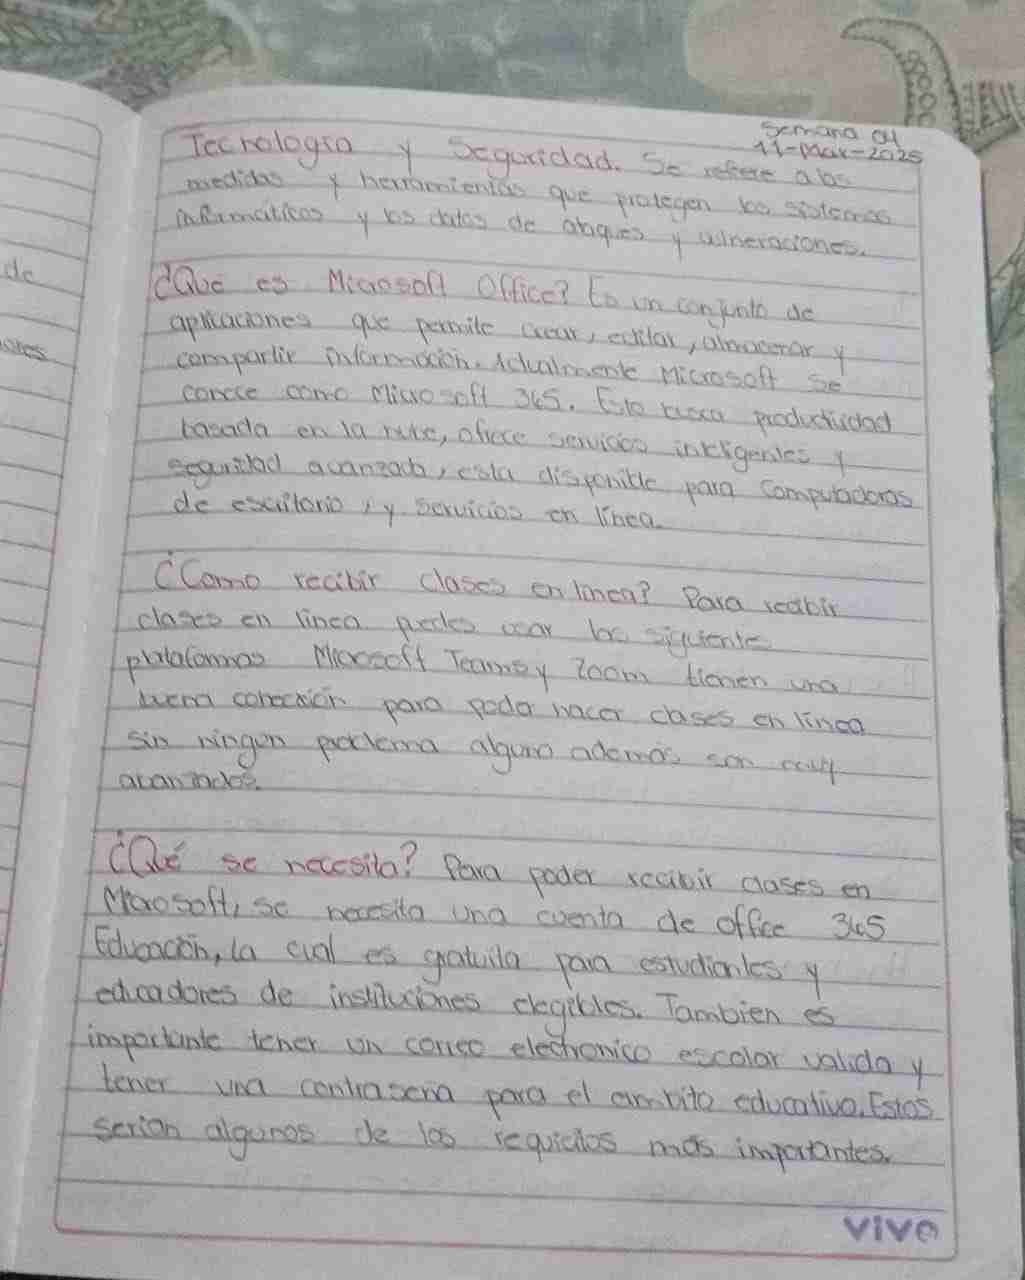 Semana 01
11-Mar-2025
Tecnología y Seguridad. Se refiere a las
medidas y herramientas que protegen los sistemas
informáticos y los datos de ataques y vulneraciones.
¿Qué es Microsoft Office? Es un conjunto de
aplicaciones que permite crear, editar, almacenar y
compartir información. Actualmente Microsoft se
conoce como Microsoft 365. Esto busca productividad
basada en la nube, ofrece servicios inteligentes y
seguridad avanzada, esta disponible para Computadoras
de escritorio, y servicios en línea.
¿Como recibir clases en linea? Para recibir
clases en linea puedes usar las siguiente
plataformas Microsoft Teams y Zoom tienen una
buena conección para poder hacer clases en linea
sin ningun problema alguno además son muy
avanzados.
¿Qué se necesita? Para poder recibir clases en
Microsoft, se necesita una cuenta de office 365
Educación, la cual es gratuita para estudiantes y
educadores de instituciones elegibles. Tambien es
importante tener un correo electronico escolar valida y
tener una contraseña para el ambito educativo. Estos
serian algunos de los requicitos más importantes.
vivo
de
ores